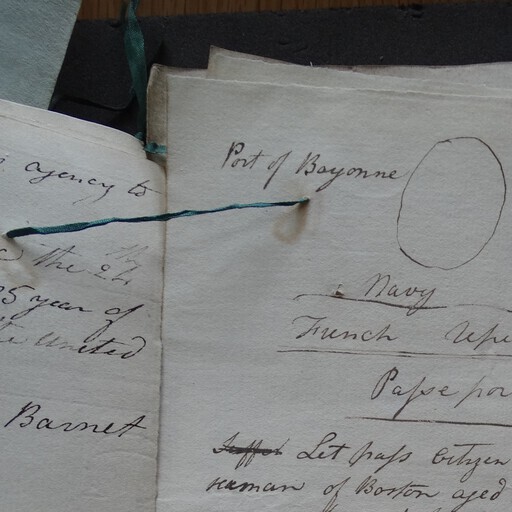 agency to
the 24
25 year of
the United
Barnet
Port of Bayonne
Navy
French
Passe por
Let pass Citizen
seaman of Boston aged